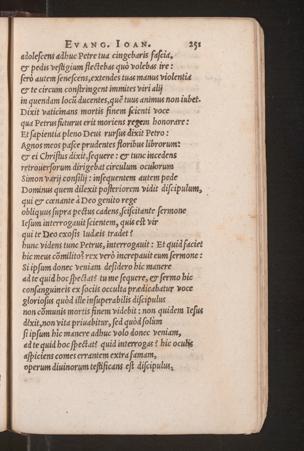 EVANG. IOAN. 251
adolescens adhuc Petre tua cingebaris fascia,
& pedis vestigium flectebas quò volebas ire:
serò autem senescens, extendes tuas manus violentia
& te circum constringent immites viri alij
in quendam locũ ducentes, quẽ tuus animus non iubet.
Dixit vaticinans mortis finem scienti voce
qua Petrus futurus erit moriens regem honorare:
Et sapientia pleno Deus rursus dixit Petro:
Agnos meos pasce prudentes floribus librorum:
& ei Christus dixit, sequere: & tunc incedens
retrouersorum dirigebat circulum oculorum
Simon varij consilij: insequentem autem pede
Dominus quem dilexit posteriorem vidit discipulum,
qui & cœnante à Deo genito rege
obliquus supra pectus cadens, sciscitante sermone
Iesum interrogauit scientem, quis est vir
qui te Deo exosis Iudæis tradet?
hunc videns tunc Petrus, interrogauit: Et quid faciet
hic meus cõmilito? rex verò increpauit eum sermone:
Si ipsum donec veniam desidero hic manere
ad te quid hoc spectat? tu me sequere, & sermo hic
consanguineis ex socijs occulta prædicabatur voce
gloriosus quòd ille insuperabilis discipulus
non cõmunis mortis finem videbit: non quidem Iesus
dixit, non vita priuabitur, sed quòd solùm
si ipsum hîc manere adhuc volo donec veniam,
ad te quid hoc spectat? quid interrogas? hic oculis
aspiciens comes errantem extra famam,
operum diuinorum testificans est discipulus,